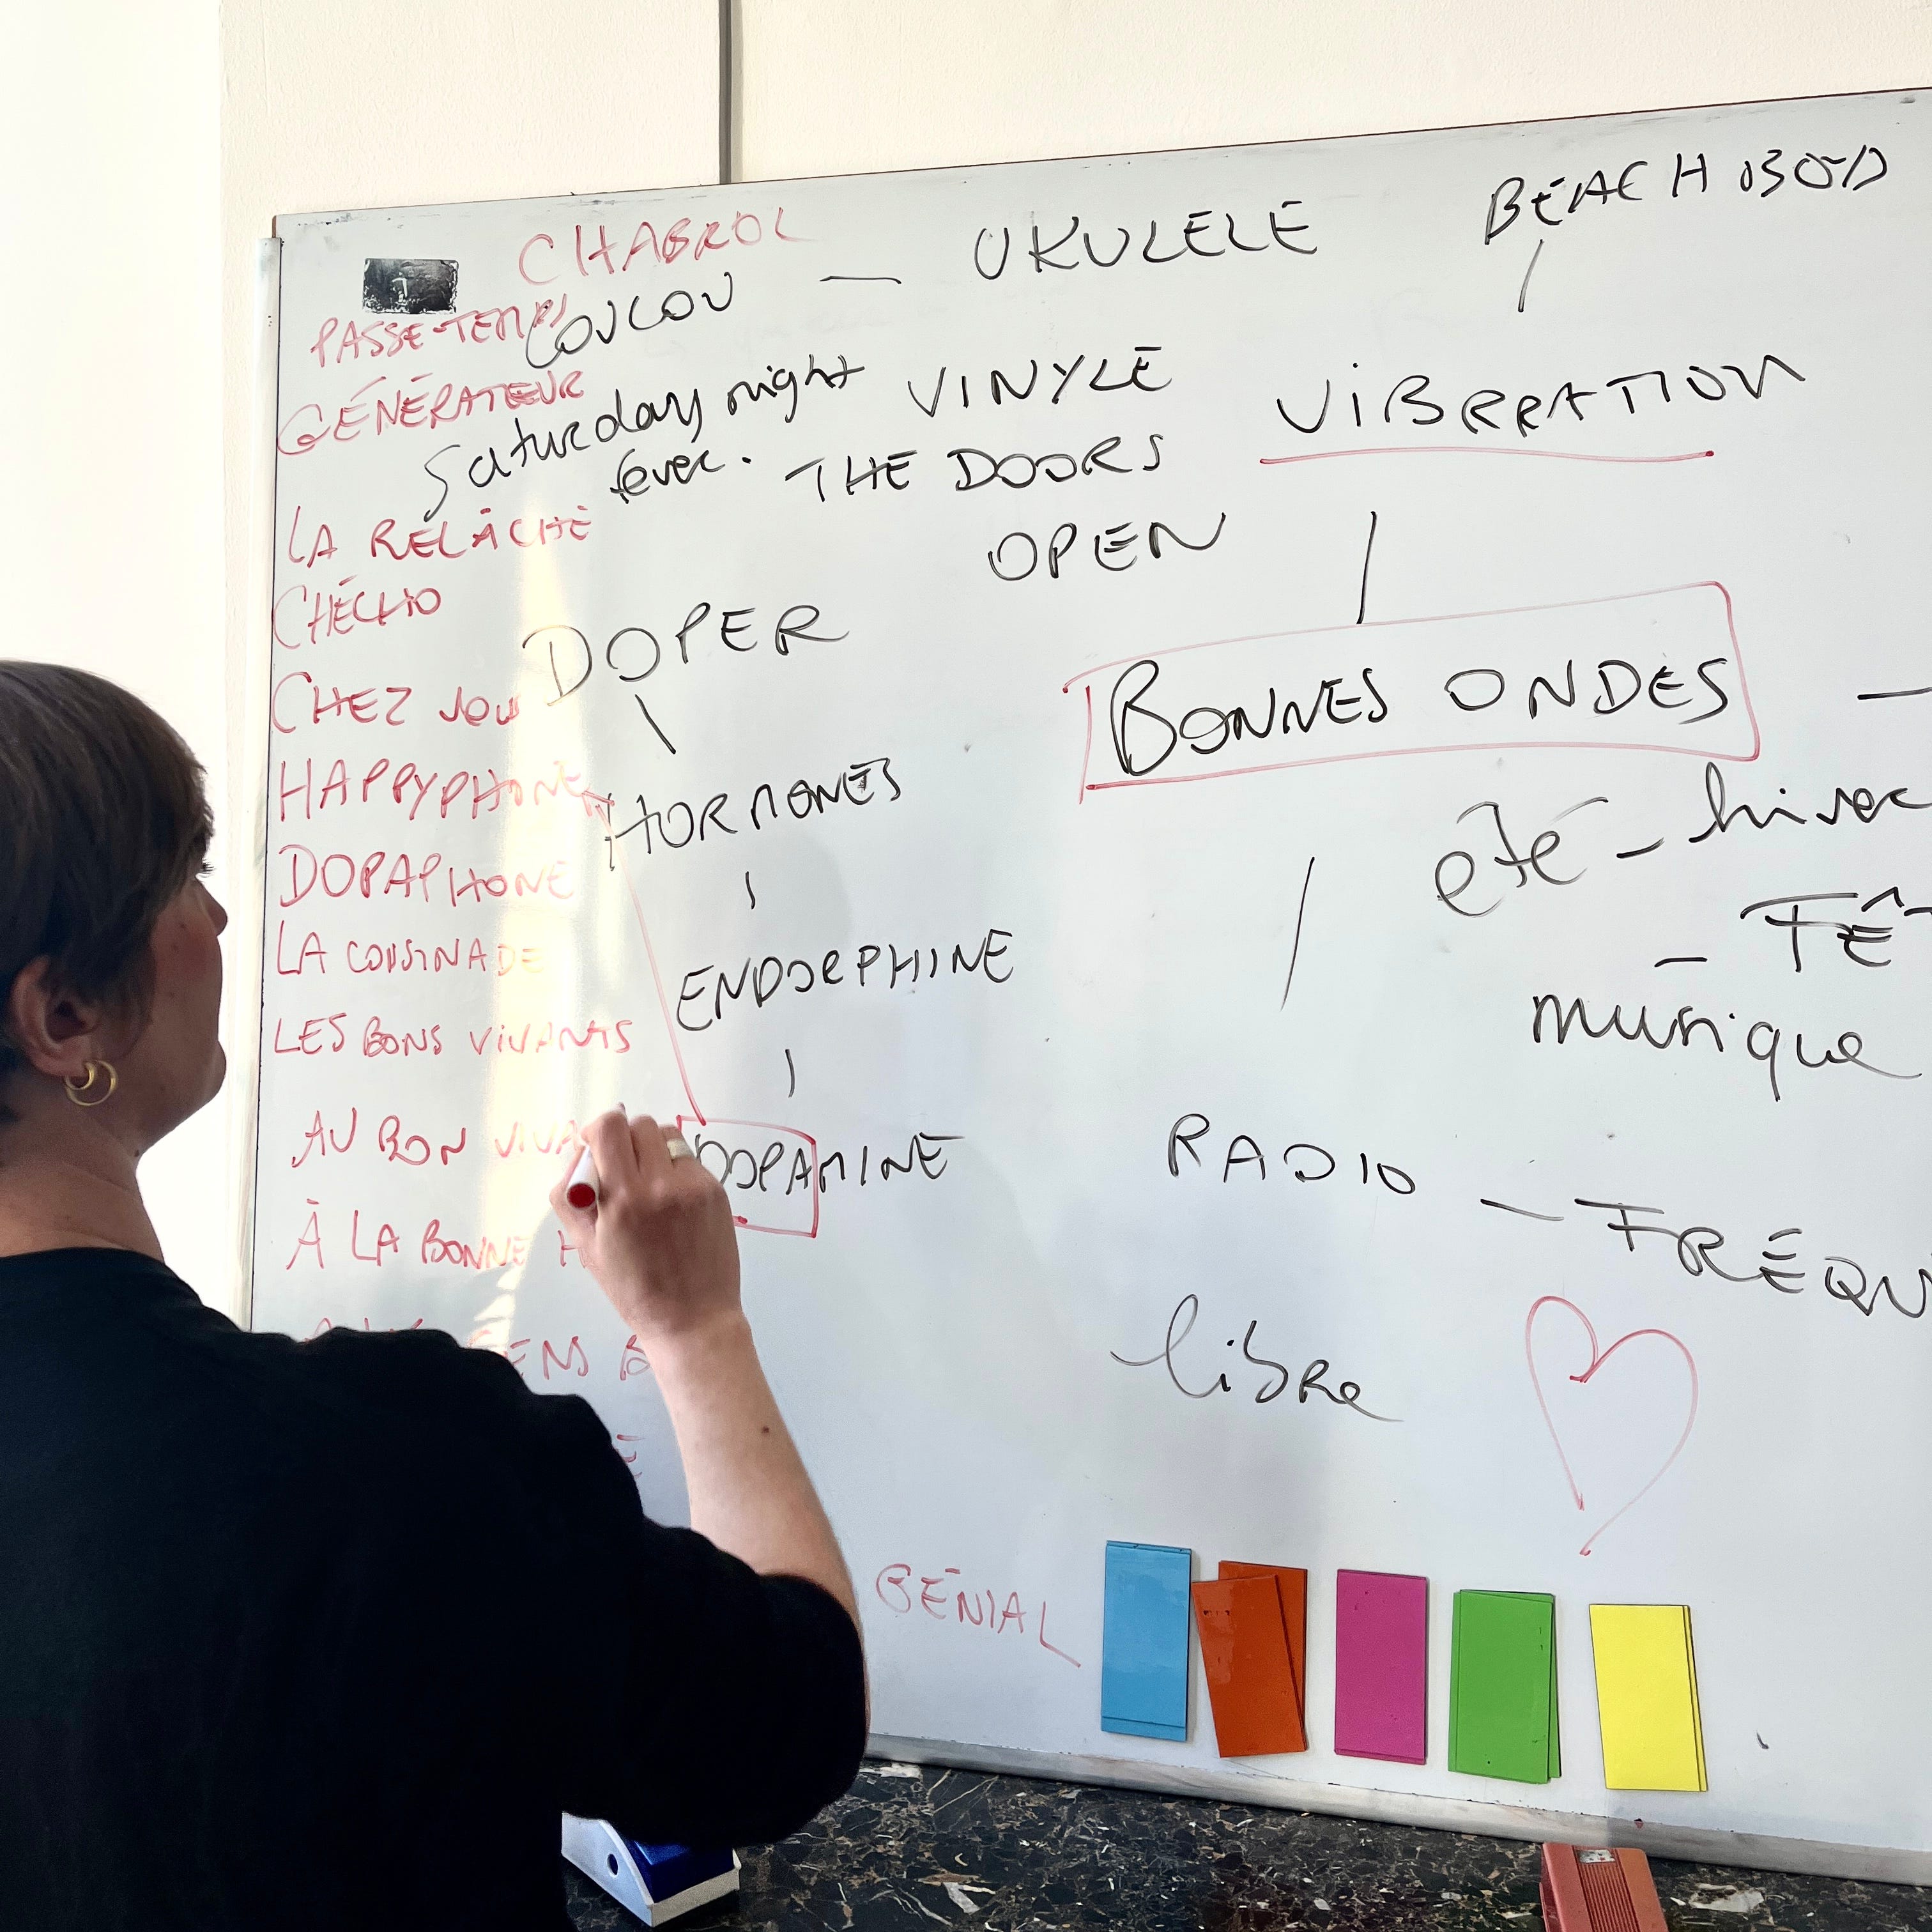 CHABROL
PASSE-TEMPS
COUCOU — UKULELE
BEACH BOY
GÉNÉRATEUR
Saturday night
fever.
VINYLE
THE DOORS
OPEN
VIBRRATION
LA RELÂCHE
CHÉCHO
CHEZ JOU
DOPER
BONNES ONDES —
HAPPYPHONE
HORMONES
été – hiver
DOPAPHONE
– FÊT
musique
LA COUSINADE
ENDORPHINE
LES BONS VIVANTS
AU BON VIVA
DOPAMINE
RADIO — FRÉQU
À LA BONNE H
ENS B
libre
GÉNIAL